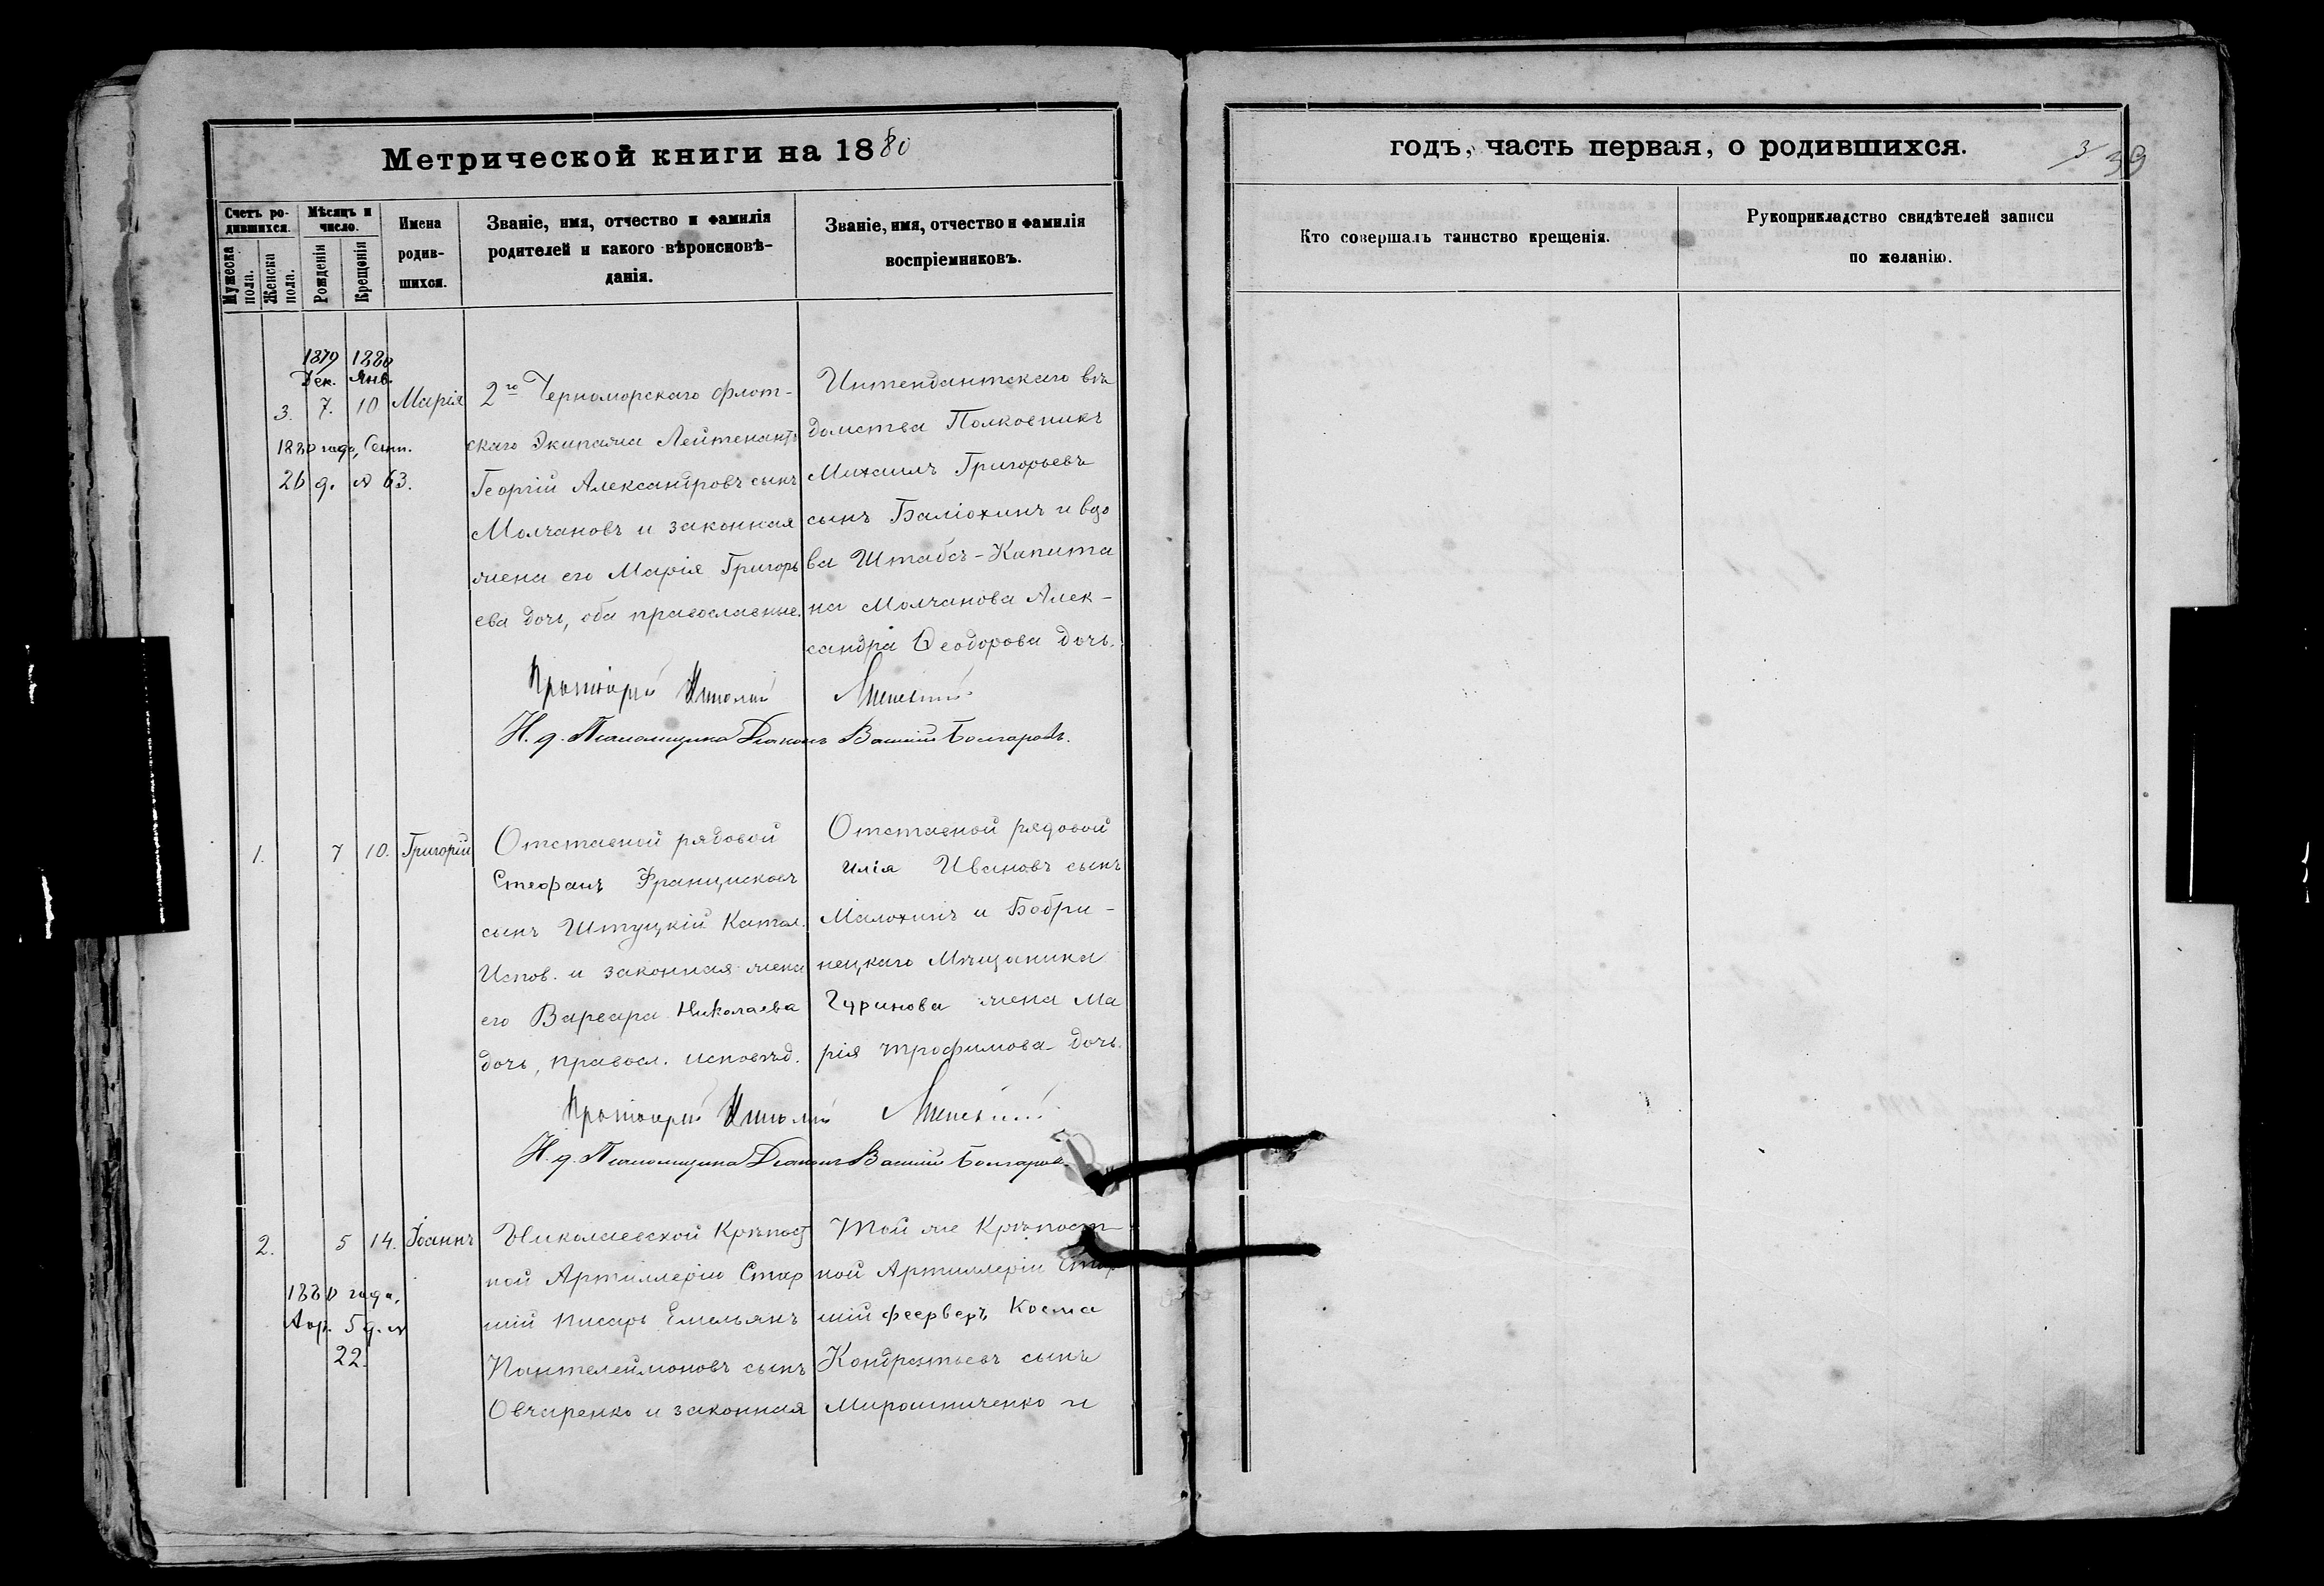 Метрической книги на 1880
годъ, часть первая, о родившихся.
3
39
Счетъ ро-
дившихся.
Мѣсяцъ и
число.
Мужеска
пола.
Женска
пола.
Рожденія
Крещенія
Имена
родив-
шихся.
Званіе, имя, отчество и фамилія
родителей и какого вѣроисповѣ-
данія.
Званіе, имя, отчество и фамилія
воспріемниковъ.
Кто совершалъ таинство крещенія.
Рукоприкладство свидѣтелей записи
по желанію.
1879 1880
Дек. Янв.
3. 7. 10 Марія
1880 года, Сент.
26 д. № 63.
2го Черноморскаго флот-
скаго Экипажа Лейтенантъ
Георгій Александровъ сынъ
Молчановъ и законная
жена его Марія Григорь
ева дочь, оба православные.
Интендантскаго вѣ
домства Полковникъ
Михаилъ Григорьевъ
сынъ Баліохинъ и вдо
ва Штабсъ-Капита
на Молчанова Алек-
сандра Ѳеодорова дочь.
Протоіерей Николай
И. д. Псаломщика Діаконъ Василій Болгаровъ.
1. 7 10. Григорій
Отставной рядовой
Стефанъ Францисковъ
сынъ Штуцкій Катол.
Испов. и законная жена
его Варвара Николаева
дочь, правосл. исповѣд.
Отставной рядовой
Илія Ивановъ сынъ
Малохинъ и Бобри-
нецкаго Мѣщанина
Гуринова жена Ма
рія Трофимова дочь.
Протоіерей Николай
И. д. Псаломщика Діаконъ Василій Болгаровъ.
2. 5 14. Іоаннъ
1880 года,
Апр. 5 д. №
22.
Николаевской Крѣпост
ной Артиллеріи Стар
шій писарь Емельянъ
Пантелеймоновъ сынъ
Овчаренко и законная
Той же Крѣпост-
ной Артиллеріи Стар
шій феерверъ Косма
Кондратьевъ сынъ
Мирошниченко и